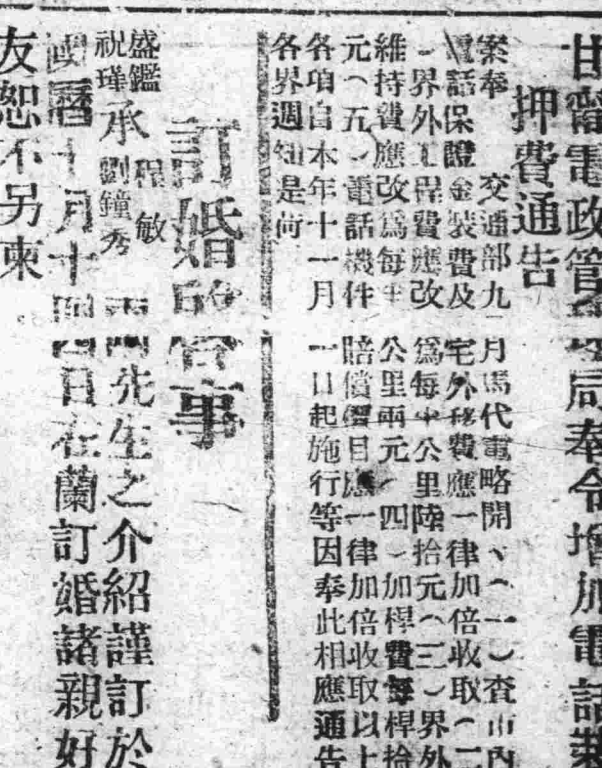 甘甯電政管理局奉令增加電話裝
押費通告
案奉 交通部九月馬代電略開、(一)查市內
電話保證金裝費及宅外移費應一律加倍收取(二
)界外工程費應改爲每半公里陸拾元(三)界外
維持費應改爲每半公里兩元(四)加桿費每桿拾
元(五)電話機件賠償價目應一律加倍收取以上
各項自本年十一月一日起施行等因奉此相應通告
各界週知是荷
訂婚啓事
盛鑑
祝瑾
承
程敏
劉鐘秀
兩先生之介紹謹訂於
國曆十月十四日在蘭訂婚諸親好
友恕不另柬